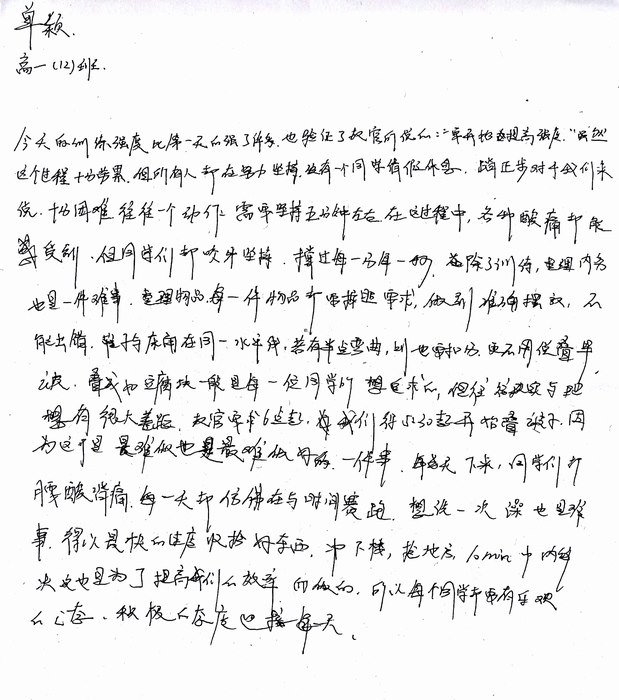 单颖.
高一(12)班.
今天的训练强度比第一天的强了许多,也验证了教官所说的:"一天天地逐提高强度."虽然
这个过程十分劳累.但所有人都在努力坚持,没有一个同学请假休息.踢正步对于我们来
说.十分困难往往一个动作需要坚持五分钟左右.在这过程中,各种酸痛都能
感受到.但同学们都咬牙坚持.撑过每一分每一秒.除了训练,整理内务
也是一件难事.整理物品.每一件物品都要按照要求,做到准确摆放,不
能出错.鞋子与床角在同一水平线,若有半点弯曲,则也要扣分.更不用说叠单
被.叠成如豆腐块一般是每一位同学的想追求的,但往往现实与理
想有很大差距.教官要求6点起.我们得5:30起开始叠被子.因
为这可是最难似也是最难做好的一件事.每天下来,同学们都
腰酸背痛.每一天都仿佛在与时间赛跑.想洗一次澡也是难
事.得以最快的速度收拾好东西.冲下楼,抢地方,10min中内解
决也也是为了提高我们的效率而做的.所以每个同学都要有乐观
的心态.积极的态度迎接每天.